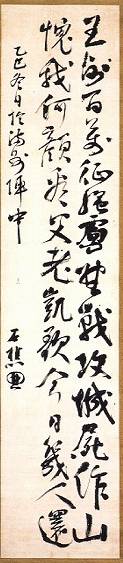 王師百萬征強虜野戰攻城屍作山
愧我何顔看父老凱歌今日幾人還
乙巳冬日於滿洲陣中
石樵典